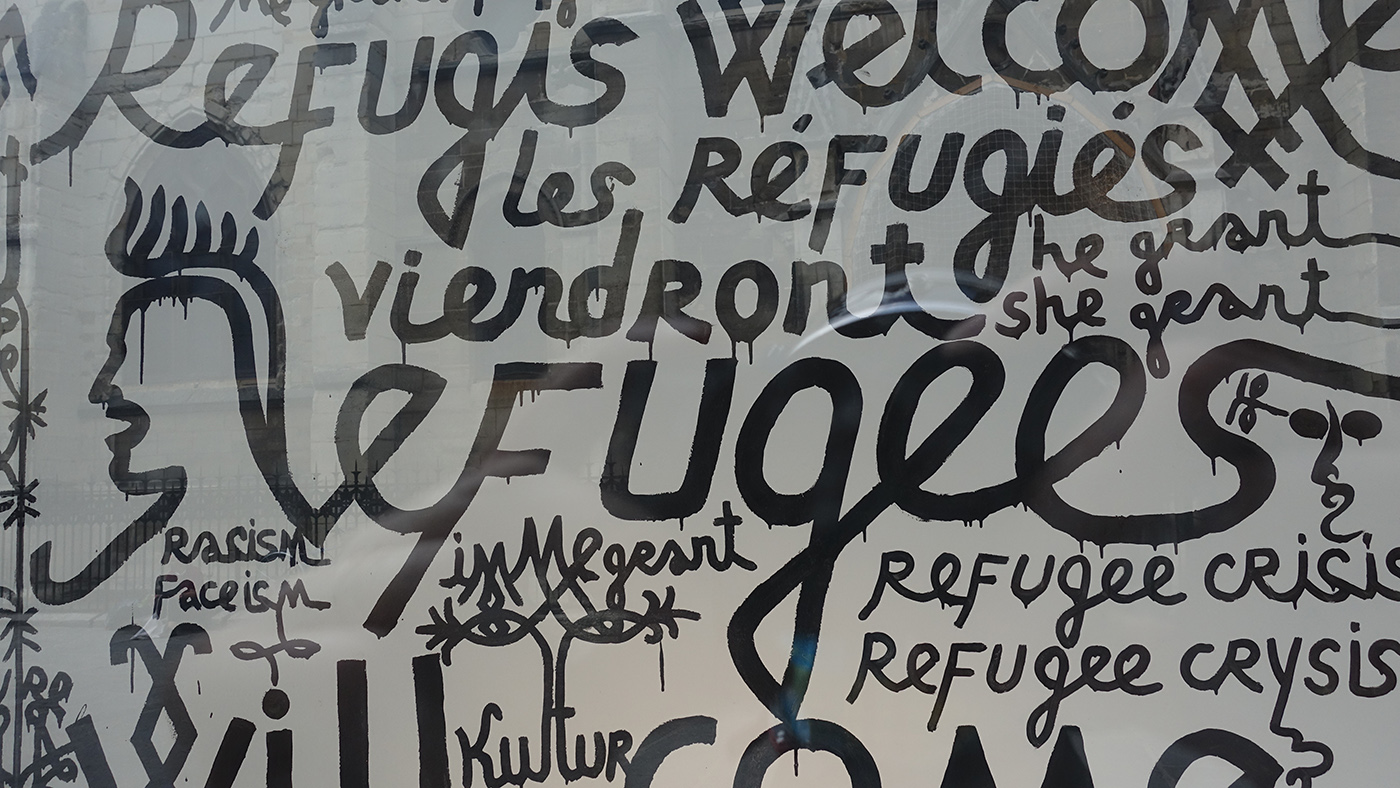 Refugis Welcome
les Réfugiés
viendront
he geant
she geant
Refugees
if
Racism
Faceism
immegeant
Refugee crisis
Refugee crysis
Kultur
will come